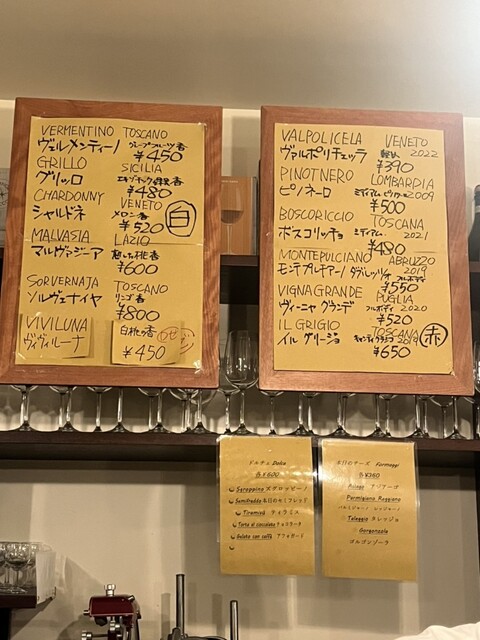 VERMENTINO TOSCANO
ヴェルメンティーノ グレープフルーツ香
¥450
GRILLO SICILIA
グリッロ エキゾチック 香
¥480
CHARDONNY VENETO
シャルドネ メロン香
¥520
白
MALVASIA LAZIO
マルヴァジーア 桃香
¥600
SORVERNAJA TOSCANO
ソルヴェナイヤ リンゴ香
¥800
VIVILUNA 白桃の香
ヴィヴィルーナ ロゼ
¥450
VALPOLICELA VENETO
ヴァルポリチェッラ 軽め 2022
¥390
PINOTNERO LOMBARDIA
ピノネーロ ミディアム 2009
¥500
BOSCORICCIO TOSCANA
ボスコリッチョ ミディアム 2021
¥480
MONTEPULCIANO ABRUZZO
モンテプルチアーノ ダブルッツォ フルボディ 2019
¥550
VIGNAGRANDE PUGLIA
ヴィーニャ グランデ フルボディ 2020
¥520
IL GRIGIO TOSCANA
イル グリージョ キャンティクラシコ 2019
¥650
赤
ドルチェ Dolce
各¥600
Saroppino スガロッピーノ
Semifreddo 本日のセミフレッド
Tiramisù ティラミス
Torta al cioccolato チョコラータ
Gelato con caffè アフォガード
本日のチーズ Formaggi
各¥360
Asiago アジアーゴ
Parmigiano Reggiano
パルミジャーノ レッジャーノ
Taleggio タレッジョ
Gorgonzola
ゴルゴンゾーラ